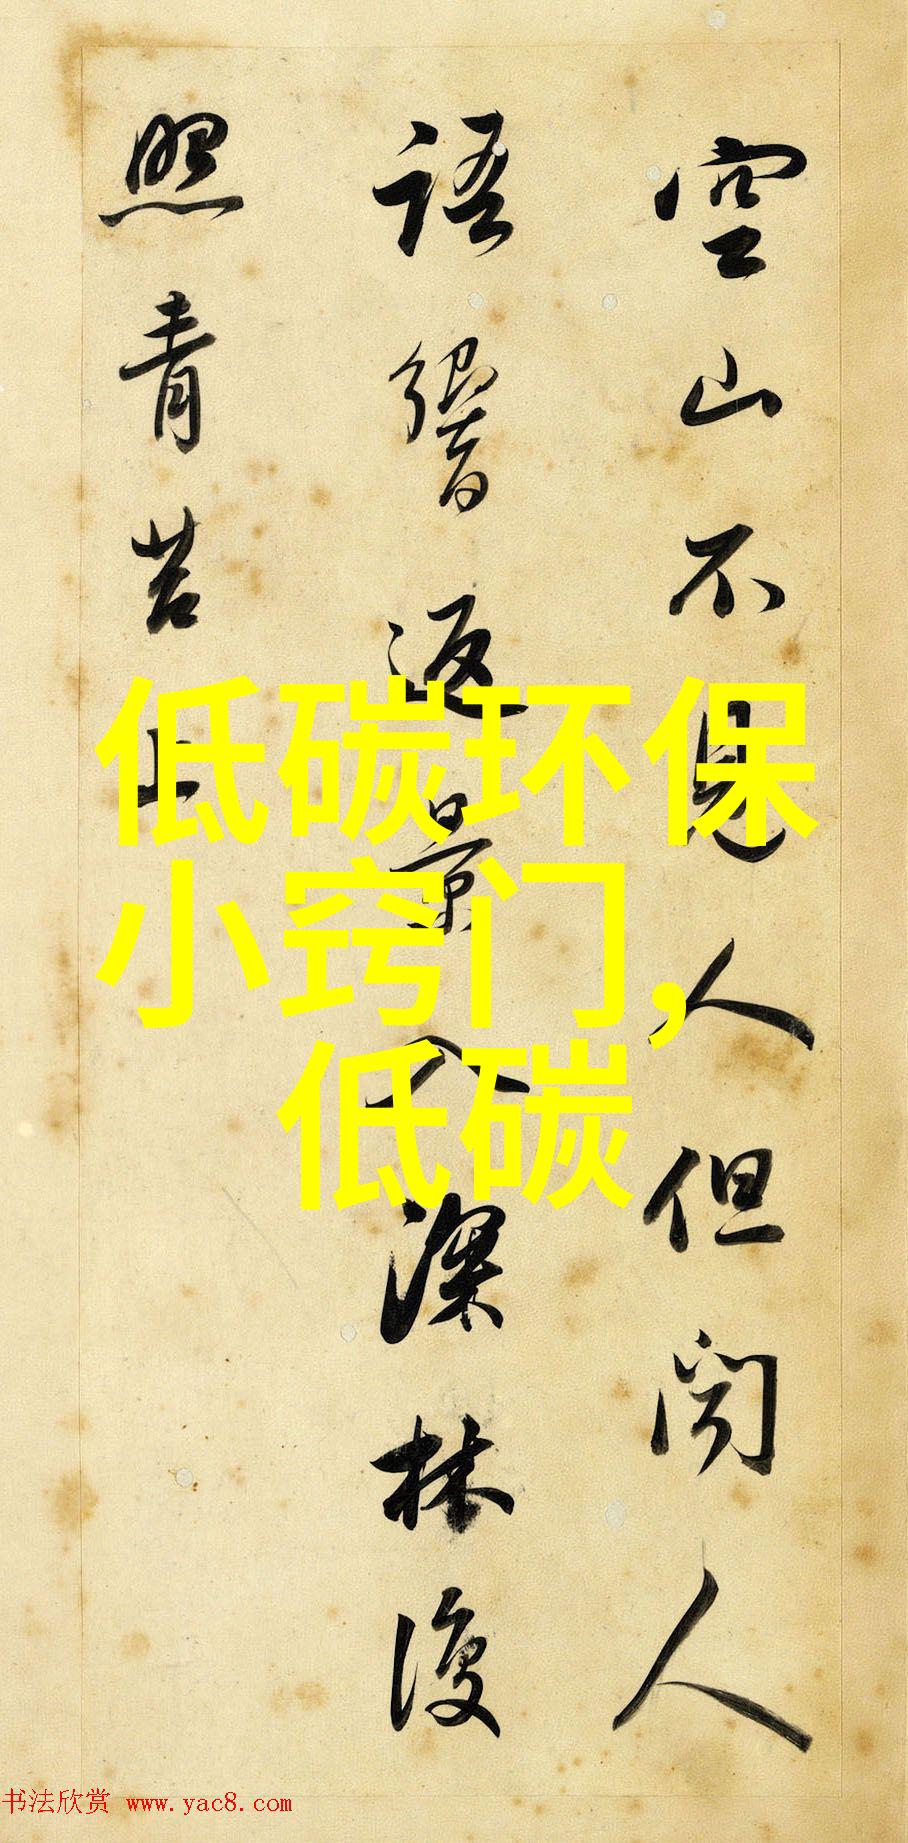 空山不見人但聞人
語響返景入深林復
照青苔上
低碳环保
小窍门，
低碳
书法欣赏 www.yac8.com